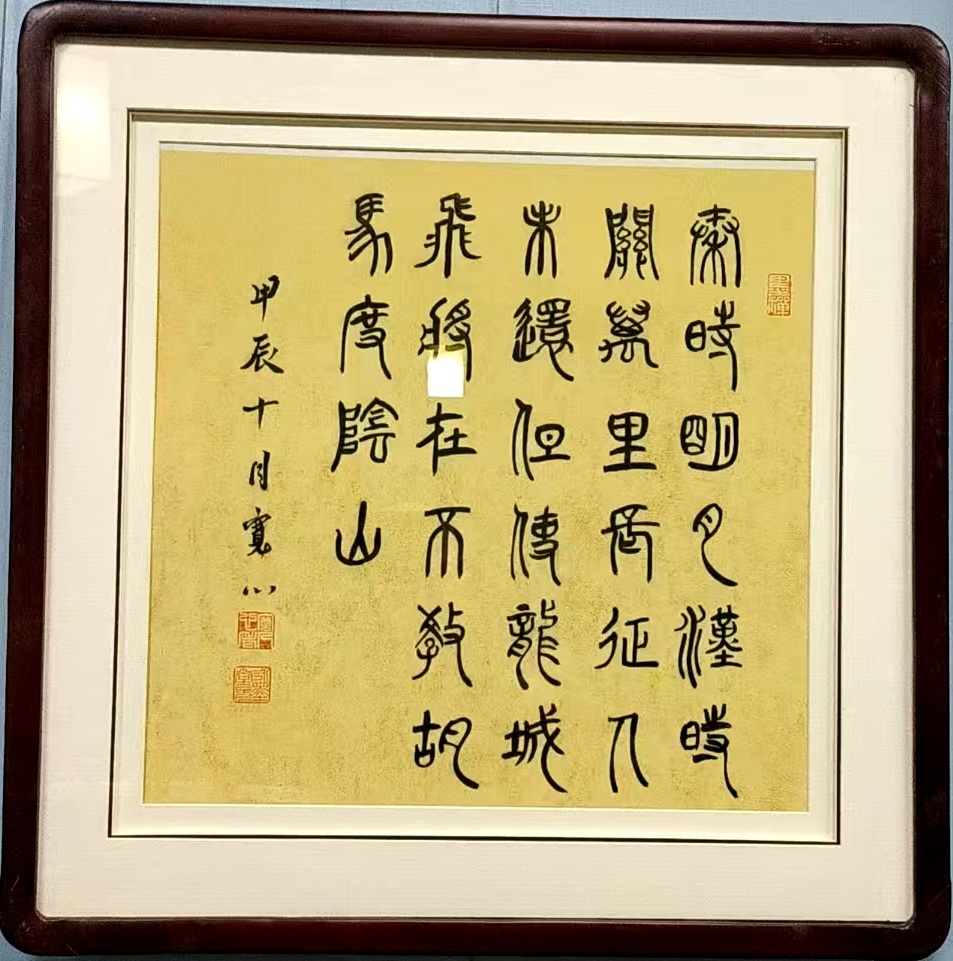 秦時明月漢時
關萬里長征人
未還但使龍城
飛將在不教胡
馬度陰山
甲辰十月寬心